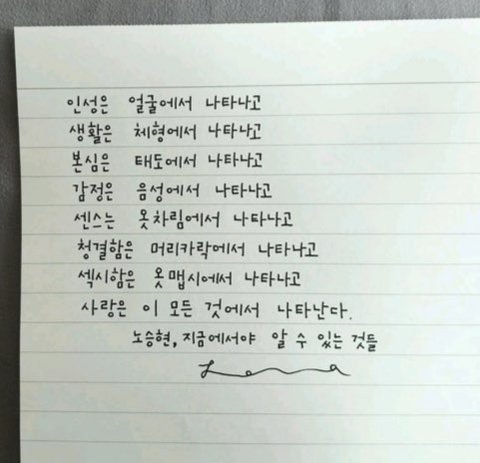 인성은 얼굴에서 나타나고
생활은 체형에서 나타나고
본심은 태도에서 나타나고
감정은 음성에서 나타나고
센스는 옷차림에서 나타나고
청결함은 머리카락에서 나타나고
섹시함은 옷맵시에서 나타나고
사랑은 이 모든 것에서 나타난다.
노승현, 지금에서야 알 수 있는 것들